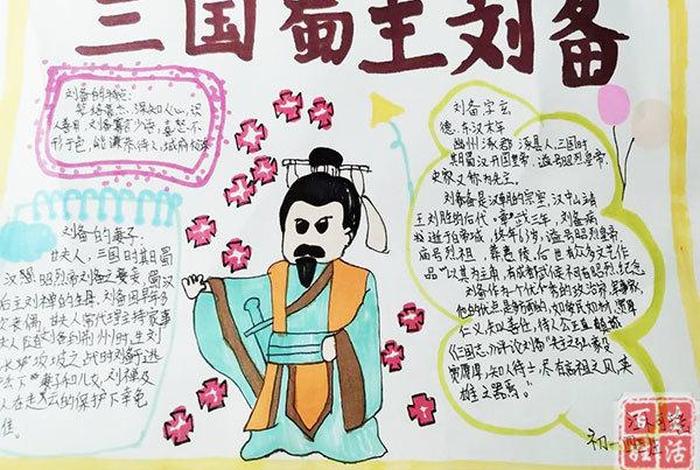 三国蜀主刘备
刘备的性格
笑颜常态 深知人心,识
人善用,刘备寡言少语,喜怒不
形于色,能谦恭待人
刘备的妻子
甘夫人,三国时期蜀
汉昭烈帝刘备之妻妾,蜀汉
后主刘禅的生母。刘备因早年多
次丧偶,甘夫人常代理主持家事
夫人在刘备到荆州时,生刘
长坂坡之战时刘备逃
丢下妻子和儿女,刘禅及
人在赵云的保护下幸免
刘备字玄
德,东汉末年
幽州涿郡涿县人,三国时
期蜀汉开国皇帝,谥号昭烈皇帝
史家又称为先主。
刘备是汉朝的宗室,汉中山靖
王刘胜的后代,章武三年,刘备病
逝于白帝城,终年63岁,谥号昭烈皇帝
庙号烈祖,葬惠陵,后世有众多文艺作
品以其为主角,有成都武侯祠有昭烈纪念
刘备作为一个优秀的政治家
他的优点是多方面的,如爱民如城,宽厚
仁义,知以善任,待人公正真诚
《三国志》评论刘备"先主弘毅
宽厚,知人待士,尽有高祖之风,英
雄之器焉。"
初一
百旺生活